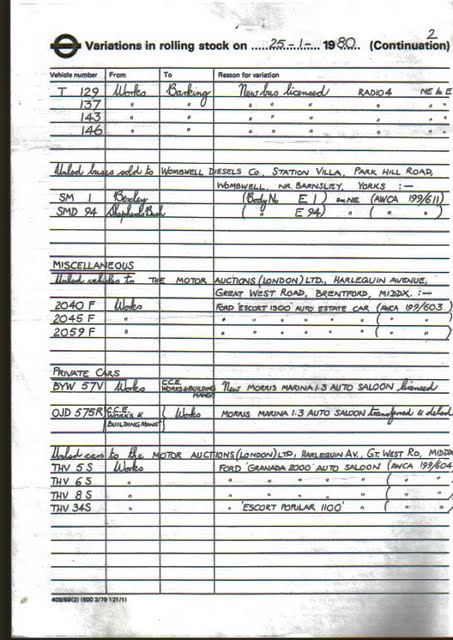 2
Variations in rolling stock on 25-1- 1980 (Continuation)
Vehicle number From To Reason for variation
T 129 Works Barking New bus licensed RADIO 4 NE to E
137 " " " " " " " "
143 " " " " " " " "
146 " " " " " " " "
Unlsd buses sold to WOMBWELL DIESELS Co., STATION VILLA, PARK HILL ROAD,
WOMBWELL, NR. BARNSLEY, YORKS :—
SM 1 Bexley (Body No E 1) ex NE (AWCA 199/611)
SMD 94 Shepherds Bush ( " E 94) " ( " " )
MISCELLANEOUS
Unlsd vehicles to THE MOTOR AUCTIONS (LONDON) LTD., HARLEQUIN AVENUE,
GREAT WEST ROAD, BRENTFORD, MIDDX. :—
2040 F Works FORD 'ESCORT 1300' AUTO ESTATE CAR (AWCA 199/603)
2045 F " " " " " " " ( " " )
2059 F " " " " " " " ( " " )
PRIVATE CARS
BYW 57V Works C.C.E. WORKS & BUILDING MANGT New MORRIS MARINA 1.3 AUTO SALOON licensed
OJD 575R C.C.E. WORKS & BUILDING MANGT } Works MORRIS MARINA 1.3 AUTO SALOON transferred & delsd
Unlsd cars to the MOTOR AUCTIONS (LONDON) LTD, HARLEQUIN AV., GT. WEST RD, MIDDX
THV 5 S Works FORD 'GRANADA 2000' AUTO SALOON (AWCA 199/604
THV 6 S " " " " " " ( " "
THV 8 S " " " " " " ( " "
THV 34S " " 'ESCORT POPULAR 1100' " " ( " "
408/65(2) (500 3/79 121/1)